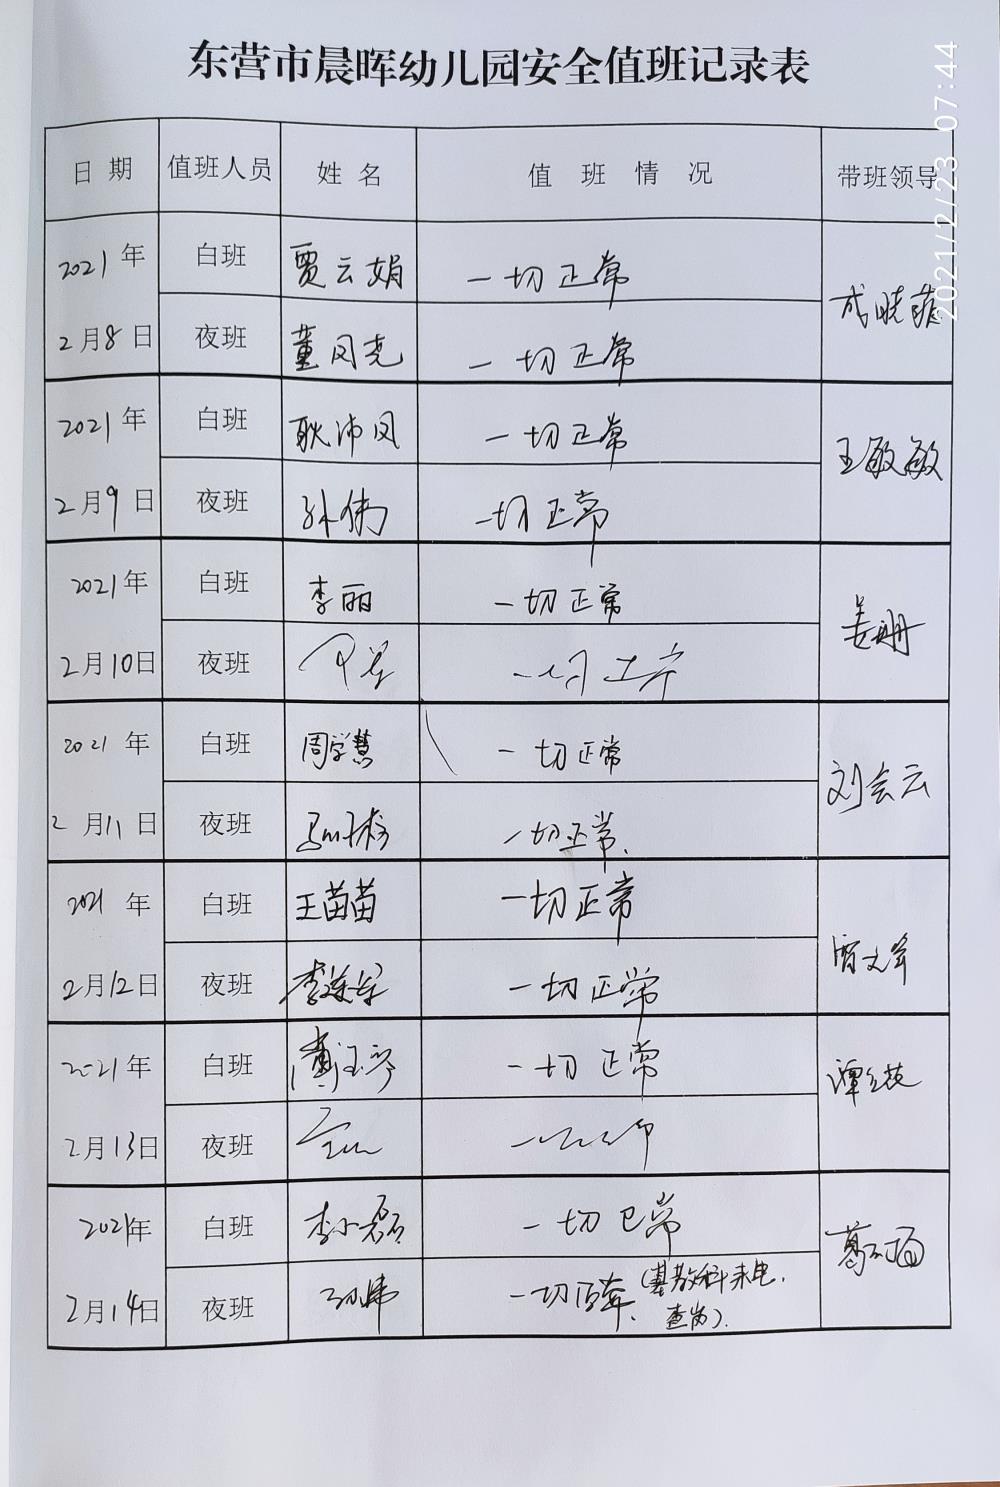 东营市晨晖幼儿园安全值班记录表
2021/2/23 07:44
日期 值班人员 姓名 值班情况 带班领导
2021年 白班 贾云娟 一切正常
2月8日 夜班 董风亮 一切正常
成晓菲
2021年 白班 耿沛风 一切正常
2月9日 夜班 孙伟 一切正常
王敏敏
2021年 白班 李丽 一切正常
2月10日 夜班
姜珊
2021年 白班 周学慧 一切正常
2月11日 夜班 一切正常、
刘会云
2021年 白班 王苗苗 一切正常
2月12日 夜班 李莲军 一切正常
2021年 白班 一切正常
2月13日 夜班
2021年 白班 李小磊 一切正常
2月14日 夜班 一切正常、(基教科来电,
查岗).